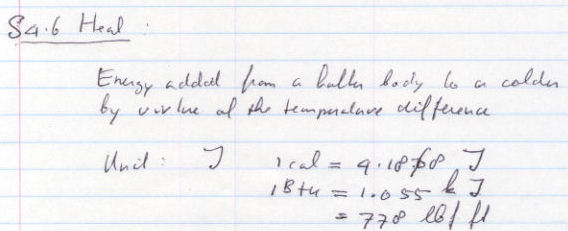 §4.6 Heat :
Energy added from a hotter body to a colder
by virtue of the temperature difference
Unit : J 1 cal = 4.1868 J
1 Btu = 1.055 kJ
= 778 lbf ft